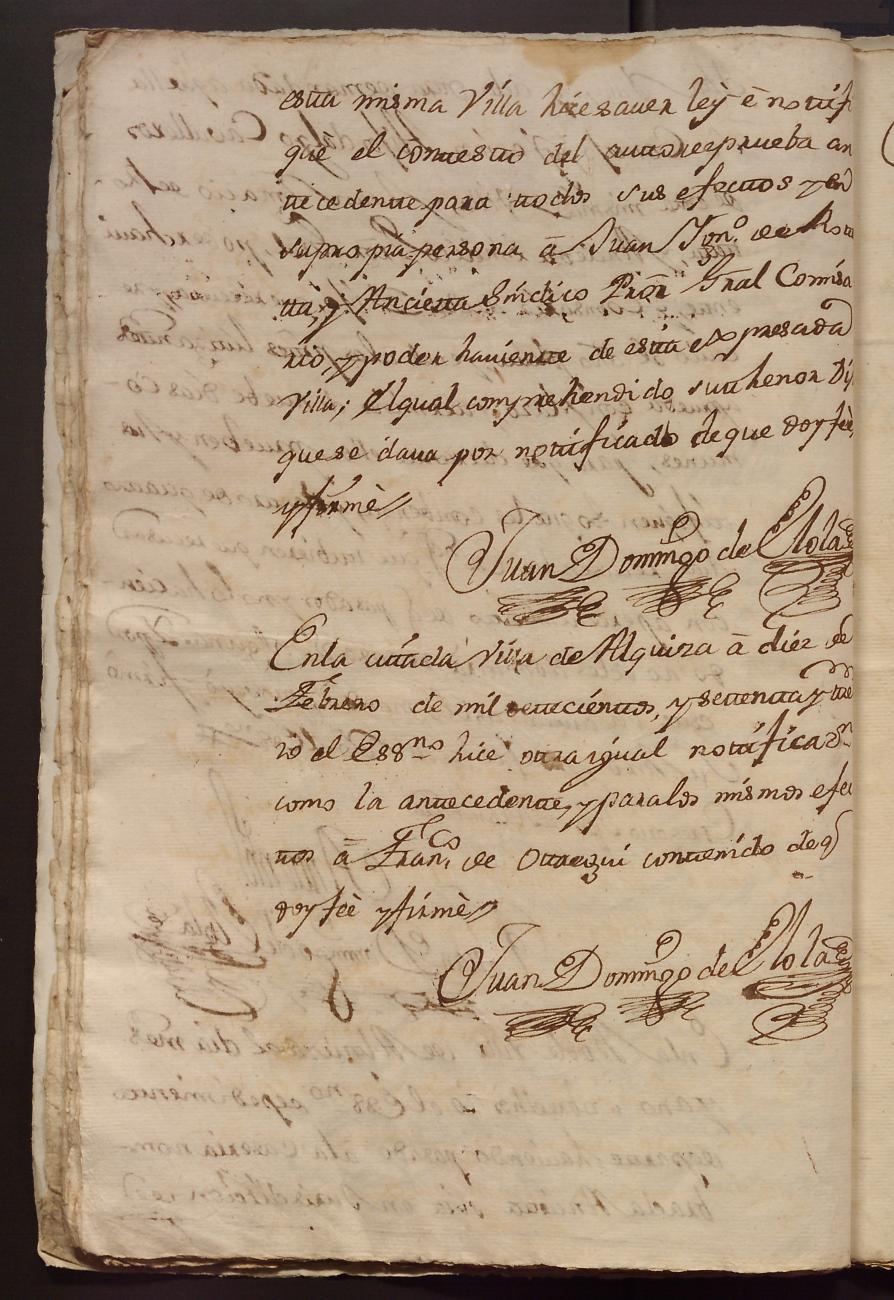 esta misma Villa hice saver ley è notifi
que el contesto del auto reeprueba an
tecedente para todos sus efectos y en
su propria persona â Juan Ign.º de
ta, y Ancieta Síndico Prõr Grãl Comisa
rio, y poder haviente de esta expresada
Villa; El qual comprehendido su thenor Dij
que se dava por notificado de que doy feè,
y firmè
Juan Domingo de Elola
En la citada Villa de Alquiza â diez de
Febrero de mil setecientos, y setenta y tre
io el Essno hice otra igual notificaon
como la antecedente, y para los mismos efec
tos â Franco de Otaegui contenido de q
doy feè y firmè
Juan Domingo de Elola